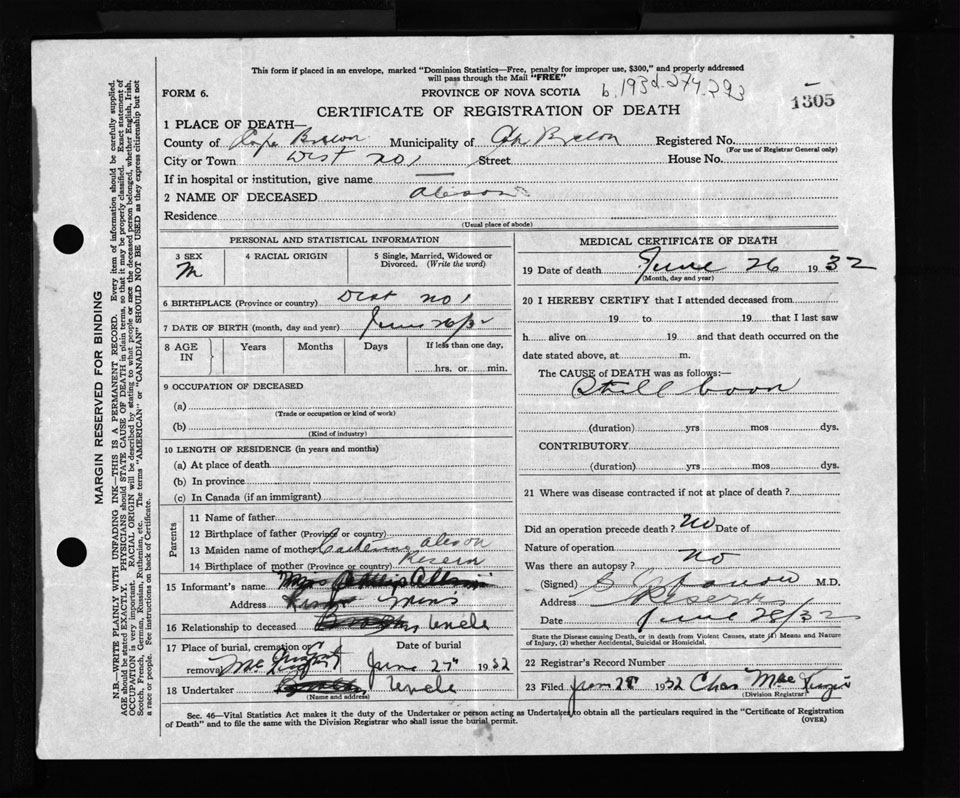 This form if placed in an envelope, marked "Dominion Statistics—Free, penalty for improper use, $300," and properly addressed
will pass through the Mail "FREE"
FORM 6.
PROVINCE OF NOVA SCOTIA b.1932.274.293
1305
CERTIFICATE OF REGISTRATION OF DEATH
1 PLACE OF DEATH—
County of Cape Breton Municipality of Cape Breton Registered No.
(For use of Registrar General only)
City or Town Dist no 1 Street House No.
If in hospital or institution, give name —
2 NAME OF DECEASED
Residence
(Usual place of abode)
PERSONAL AND STATISTICAL INFORMATION
3 SEX 4 RACIAL ORIGIN 5 Single, Married, Widowed or
Divorced. (Write the word)
M
6 BIRTHPLACE (Province or country) Dist no 1
7 DATE OF BIRTH (month, day and year) June 26/32
8 AGE IN Years Months Days If less than one day,
hrs. or min.
9 OCCUPATION OF DECEASED
(a)
(Trade or occupation or kind of work)
(b)
(Kind of industry)
10 LENGTH OF RESIDENCE (in years and months)
(a) At place of death
(b) In province
(c) In Canada (if an immigrant)
Parents
11 Name of father
12 Birthplace of father (Province or country)
13 Maiden name of mother Catherine
14 Birthplace of mother (Province or country) Reserve
15 Informant's name
Address Mines
16 Relationship to deceased Uncle
17 Place of burial, cremation or Date of burial
removal June 27th 1932
18 Undertaker Uncle
(Name and address)
MEDICAL CERTIFICATE OF DEATH
19 Date of death June 26 1932
(Month, day and year)
20 I HEREBY CERTIFY that I attended deceased from
19 to 19 that I last saw
h alive on 19 and that death occurred on the
date stated above, at m.
The CAUSE of DEATH was as follows:—
Still born
(duration) yrs mos dys.
CONTRIBUTORY
(duration) yrs mos dys.
21 Where was disease contracted if not at place of death ?
Did an operation precede death ? No Date of
Nature of operation
Was there an autopsy ? no
(Signed) M.D.
Address Reserve
Date June 28/32
State the Disease causing Death, or in death from Violent Causes, state (1) Means and Nature
of Injury, (2) whether Accidental, Suicidal or Homicidal.
22 Registrar's Record Number
23 Filed June 28 1932 Chas Mac
(Division Registrar)
Sec. 46—Vital Statistics Act makes it the duty of the Undertaker or person acting as Undertaker to obtain all the particulars required in the "Certificate of Registration
of Death" and to file the same with the Division Registrar who shall issue the burial permit. (OVER)
MARGIN RESERVED FOR BINDING
N.B.—WRITE PLAINLY WITH UNFADING INK—THIS IS A PERMANENT RECORD. Every item of information should be carefully supplied.
AGE should be stated EXACTLY. PHYSICIANS should STATE CAUSE OF DEATH in plain terms, so that it may be properly classified. Exact statement of
OCCUPATION is very important. RACIAL ORIGIN will be described by stating to what people or race the deceased person belonged, whether English, Irish,
Scotch, French, German, Russian, Ruthenian, etc. The terms "AMERICAN" or "CANADIAN" SHOULD NOT BE USED as they express citizenship but not
a race or people. See instructions on back of Certificate.